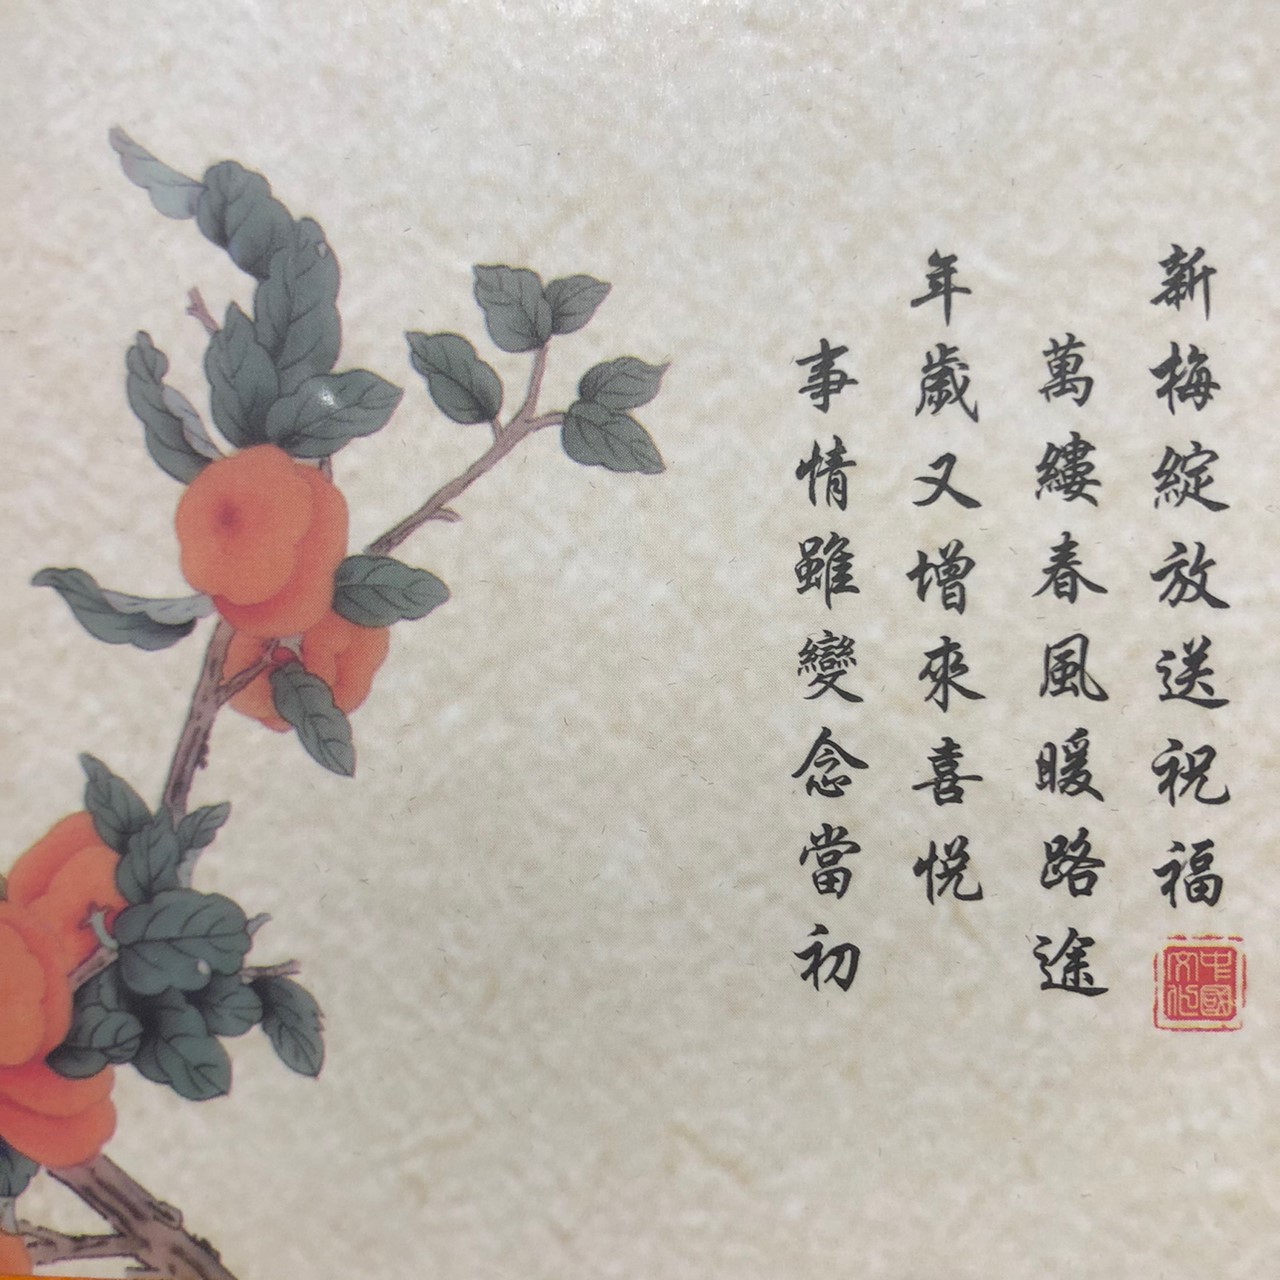 新梅綻放送祝福
萬縷春風暖路途
年歲又增來喜悅
事情雖變念當初
中國文化